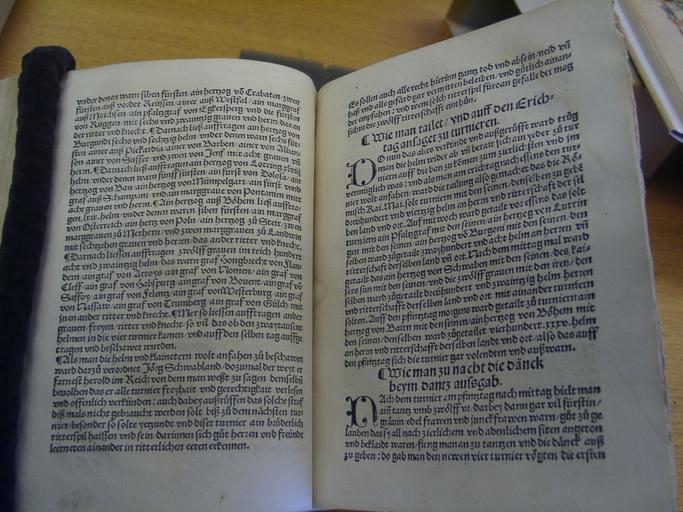 vnder denen warn siben fürsten/ain hertzog võ Crabaten/zwen
fürsten auß vorder Reüssen/ainer auß Westfal/ain marggraf
auß Meichsen/ain pfaltzgraf von
von Ruggen/mit sechs vnd zwaintzig grauen vnd herrn/das an
der ritter vnd knecht. ¶Darnach ließ aufftragen ain hertzog võ
Burgundi sechs vnd sechtzig helm/vnder denen warn sechs für
sten/ainer auß Pickardia/ainer von Barben/ainer von
son/ainer von Suffer/vnd zwen von Jenf/mit acht grauen vñ
herrn. ¶Darnach ließ aufftragen ain hertzog von Lotring
helm/vnder denen warn fünff fürsten/ain fürst von Dolosa/ain
hertzog von Bari/ain hertzog võ Nümpelgart/ain fürst vnd
graf auß Schampani/vnd ain marggraue von Pontamin/mit
acht grauen vñ herrn. ¶Ain hertzog auß Böhem ließ aufftra-
gen/ helm/vnder denen waren siben fürsten/ain marggraf
von Osterreich/ain hertz von Poln/ain hertzog zů Steir/zwen
marggrauen zů Merhern/vnd zwen marggrauen zů Landtrin
mit sechtzehen grauen vnd herren/das ander ritter vnd knecht.
¶Darnach liessen aufftragen zwölff grauen im reich hundert
acht vnd zwaintzig helm/das warn graf Hongbrecht von
dern/ain graf von Artoys/ain graf von Nomen/ain graf von
Cleff/ain graf von Habspurg/ain graf von Bouent/ain graf vö
Saffoy/ain graf von ain graf von Westerburg/ain graf
von Nassaw/ain graf von Trumberg/ain graf von Gülch/mit
jnen ander ritter vnd knecht. ¶Mer so liessen aufftragen ander
grauen/freyen/ritter vnd knecht/so vil/das ob den zwaytausent
helmen in die vier turnier kamen/vnd auff den selben tag auffge
tragen vnd beschawet wurden.
¶Als man die helm vnd klainetern wolt anfahen zů beschawen
ward darzů verordnet Jörg Schwabland/dozumal der weyt er
farnest herold im Reich von dem man weßt zů sagen/demselbẽ
beuolhen das er alle turnier freyhait vnd gerechtigkait verlesen
vnd offenlich verkünden/auch dabey außrüffen das solchs straf
diß mals nicht gebraucht werden solt/biß zů dem nächsten tur-
nier/besonder so solte yetzund vnd diser turnier ain brüderlich
ritterspil haissen vnd sein/darinnen sich gůt herren vnd freünde
leerneten ainander in ritterlichen eeren erkennen.
Es sollen auch alle recht hierinn gantz tod vnd absein/neid vñ
haß/vnd alle gefärd gar vermitten beleiben/vnd gütlich ainan-
der empfahen/vnd wem solch ritterspil füroan gefalle der mag
sichin die zwölff ritterschafft
¶Wie man tailet/vnd auff den Erich-
tag ansaget zů turnieren.
DO nun das alles verkünd vnd außgerüfft ward/trůg
man die helm wider ab/vñ berait sich ain yeder zů tur
nieren auff der ban zů kõmen zum zierlichsten vnd in-
uermüglich was/vnd als man am erichtag nach essens turni-
nier wolt anfahen/ward die tailung also gemachet/das die Rö-
misch Kai. Ma. solt turniern mit den seinen/den selben zů geben
dreühundert vnd viertzig helm an herrn vnd ritterschafft der sel
ben land vnd ort. Auff mitwoch ward getailt vor essens/das solt
turniern ain Pfaltzgraf mit den seinen/ain hertzog von Lutrin
gen mit den seinen/ain hertzog võ Burgoni mit den seinen/den
selben ward zůgetailt zwayhundert vnd acht helm an herren vñ
ritterschafft der selben land vñ ort. Nach dem mittag mal ward
getailt das ain hertzog von Schwaben mit den seinen/des kai-
sers sun mit den seinen/vnd die zwölff grauen mit den iren/den
selben ward zůgetailt dreühundert vnd zwaintzig helm herren
vnd ritterschafft der selben land vnd ort/mit ainander turniern
solten. Auff den pfintztag morgens ward getailt zů turniern ain
hertzog von Bairn mit den seinen/ain hertzog võ Böhem mit
den seinen/denselben ward zůgetailet vierhundert.xxxv.helm
an herrn vnd ritterschafft der selben land vnd ort/also das auff
den pfintztag sich der turnier gar volendten vnd außwarn.
¶Wie man zů nacht die dänck
beym dantz außgab.
NAch dem turnier am pfintztag nach mittag hielt man
ain tantz vmb zwölff vr/darbey dann gar vil fürstin/
gräuin/edel frawen vnd junckfrawen warn/gůt zů ge
lauben das sy all nach zierlichem vnd adenlichem siten angeton
vnd beklaidt warn/fieng man an zů tantzen vnd die dänck auß
zů geben/do gab man den newen vier turnier võgten die ersten